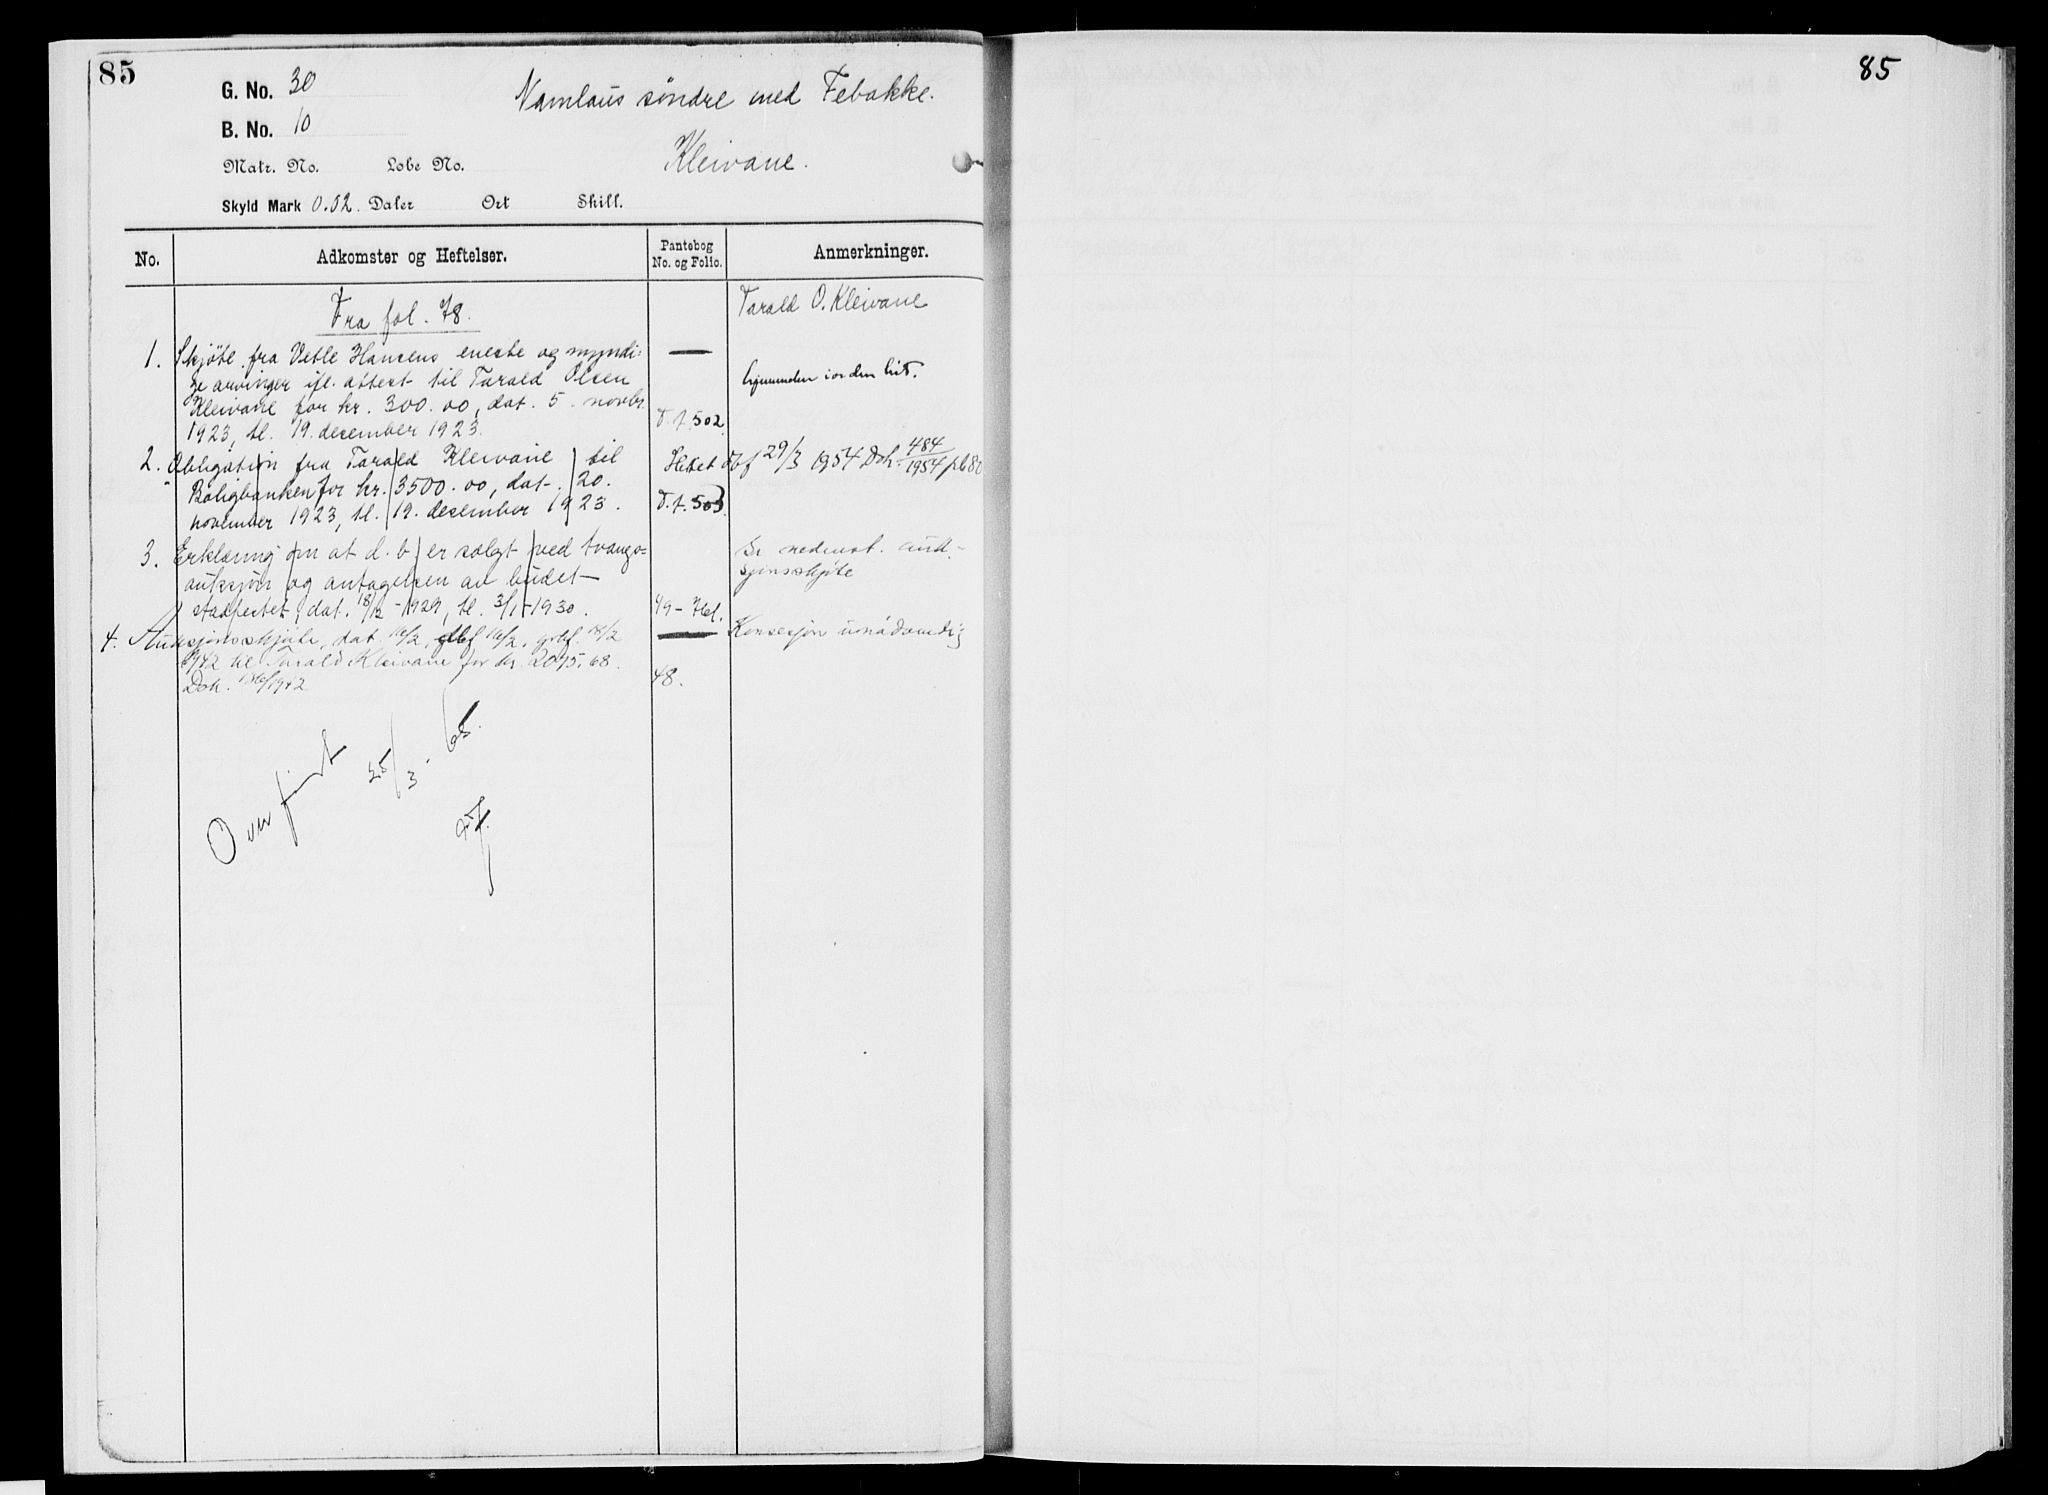 85
G. No. 30
B. No. 10
Namlaus søndre med Febakke.
Kleivane.
Matr. No. Lobe No.
Skyld Mark 0.02. Daler Ort Skill.
No. Adkomster og Heftelser. Pantebog No. og Folio. Anmerkninger.
Fra fol. 78.
Tarald O. Kleivane
1. Skjöte fra Vetle Hansens eneste og myndi-
ge arvinger ifl. attest til Tarald Olsen
Kleivane for kr. 300.00, dat. 5. novbr.
1923, tl. 19. desember 1923. D. f. 502.
2. Obligation fra Tarald Kleivane til Slettet dbf 29/3 1954 Dok. 484/1954 pb 80
Boligbanken for kr. 3500.00, dat. 20.
november 1923, tl. 19. desember 1923. D. f. 503.
3. Erklæring om at d. b. er solgt ved tvangs= Se nedenst. auk-
auksjon og antagelsen av budet sjonsskjøte
stadfestet, dat. 18/12-1929, tl. 3/1-1930. 49-
4. Auksjonsskjøte, dat. 16/2, 16/2, 18/2 Konsesjon unødvendig
1942 til Tarald Kleivane for kr. 2095.68.
Dok. /1942 48.
Overført 25/3-65.
85